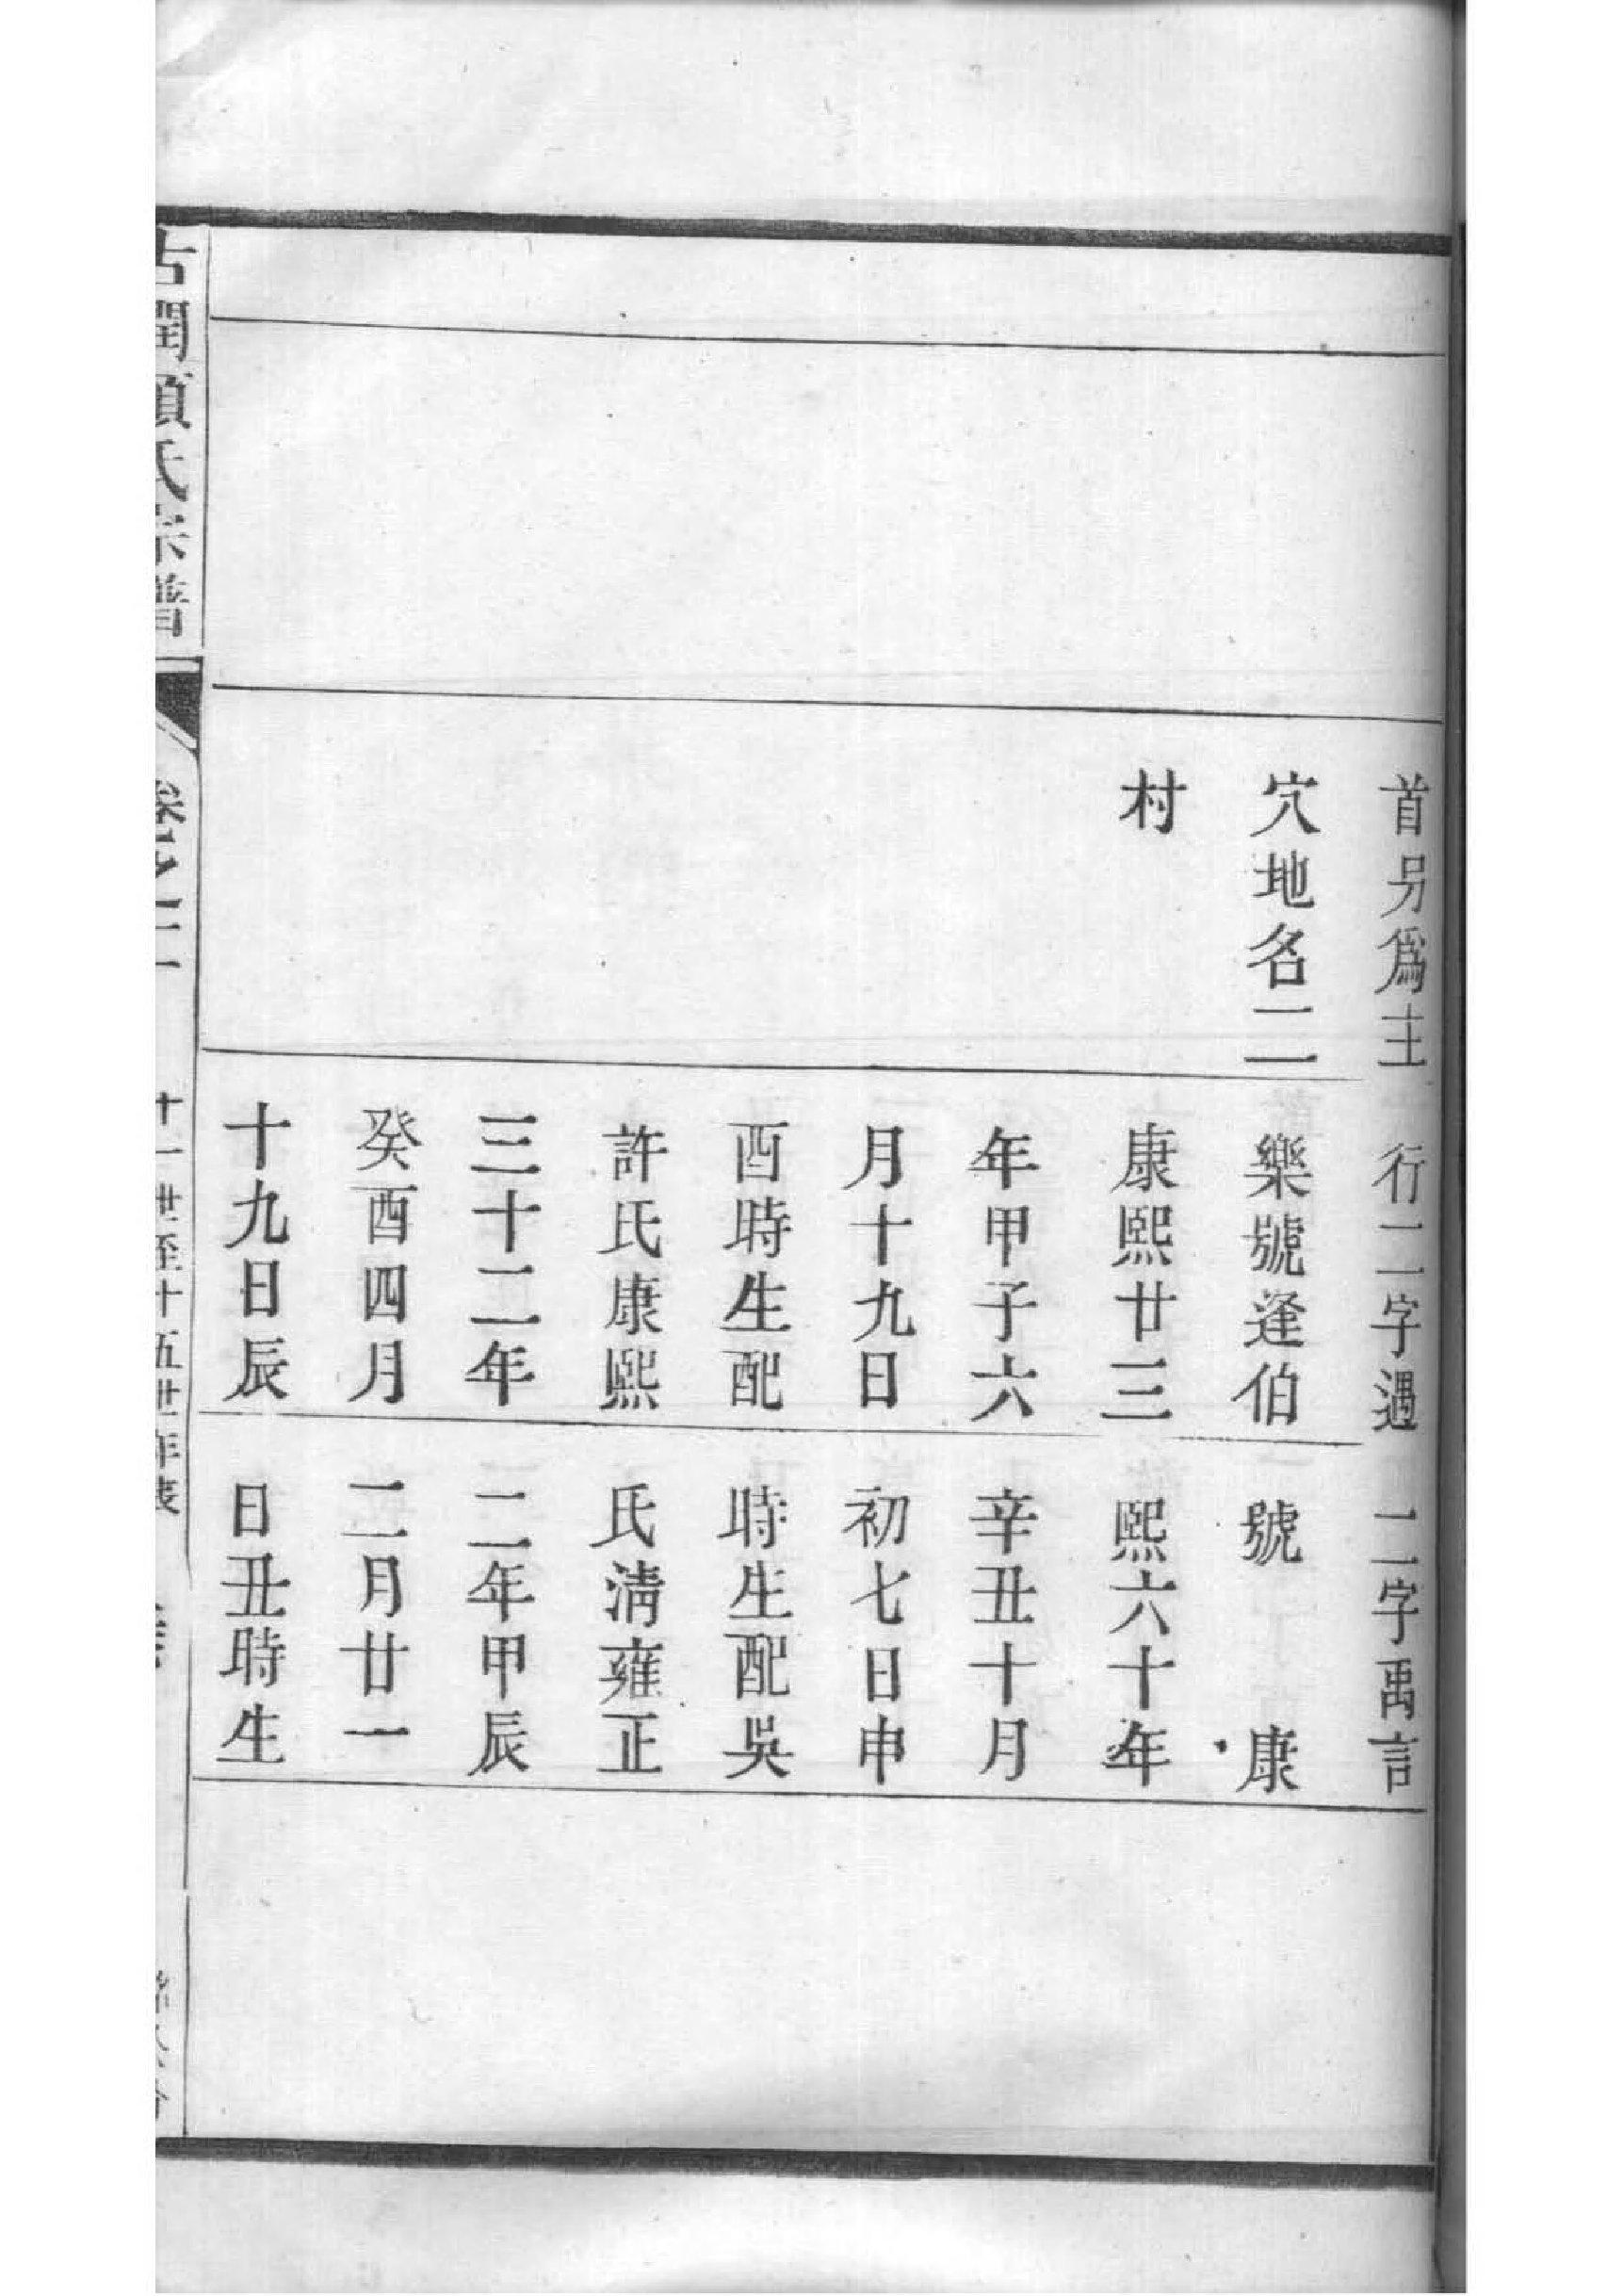 首另爲主
穴地名二
村
行二字遇
樂號逢伯
康熙廿三
年甲子六
月十九日
酉時生配
許氏康熙
三十二年
癸酉四月
十九日辰
二字禹言
號 康
熙六十年
辛丑十月
初七日申
時生配吳
氏淸雍正
二年甲辰
二月廿一
日丑時生
古潤顧氏宗譜
卷之二
十一世至十五世年表